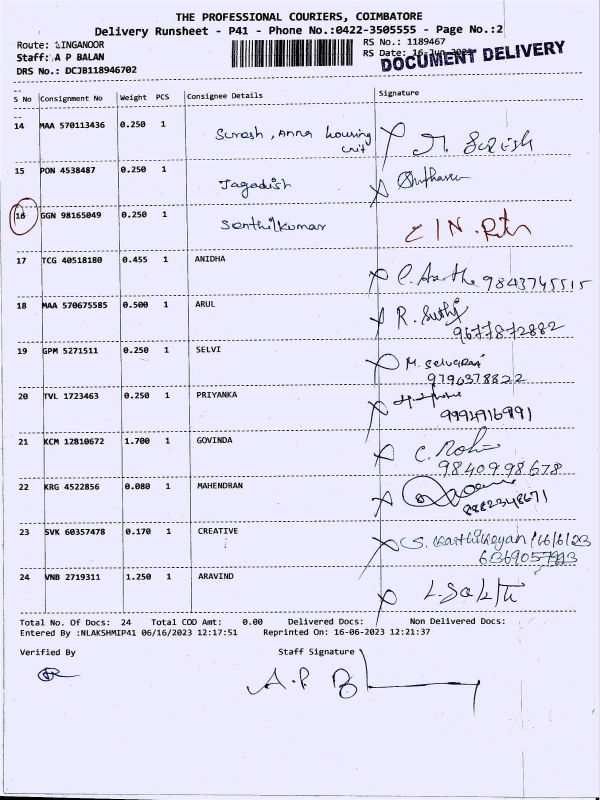 THE PROFESSIONAL COURIERS, COIMBATORE
Delivery Runsheet - P41 - Phone No.:0422-3505555 - Page No.:2
Route: SINGANOOR RS No.: 1189467
Staff: A P BALAN RS Date: 16-Jun-2023
DOCUMENT DELIVERY
DRS No.: DCJB118946702
S No Consignment No Weight PCS Consignee Details Signature
14 MAA 570113436 0.250 1 Suresh, Anna housing unit
15 PON 4538487 0.250 1 Jagadish
16 GGN 98165049 0.250 1 Senthilkumar
17 TCG 40518180 0.455 1 ANIDHA 9843745515
18 MAA 570675585 0.500 1 ARUL R. Suthi
9677872882
19 GPM 5271511 0.250 1 SELVI M. Selvaraj
9790378822
20 TVL 1723463 0.250 1 PRIYANKA
21 KCM 12810672 1.700 1 GOVINDA C. Mohu
9840998678
22 KRG 4522856 0.080 1 MAHENDRAN
8882348671
23 SVK 60357478 0.170 1 CREATIVE S. Karthikeyan /16/6/23
24 VNB 2719311 1.250 1 ARAVIND L. Sakthi
Total No. Of Docs: 24 Total COD Amt: 0.00 Delivered Docs: Non Delivered Docs:
Entered By :NLAKSHMIP41 06/16/2023 12:17:51 Reprinted On: 16-06-2023 12:21:37
Verified By Staff Signature
A.P B